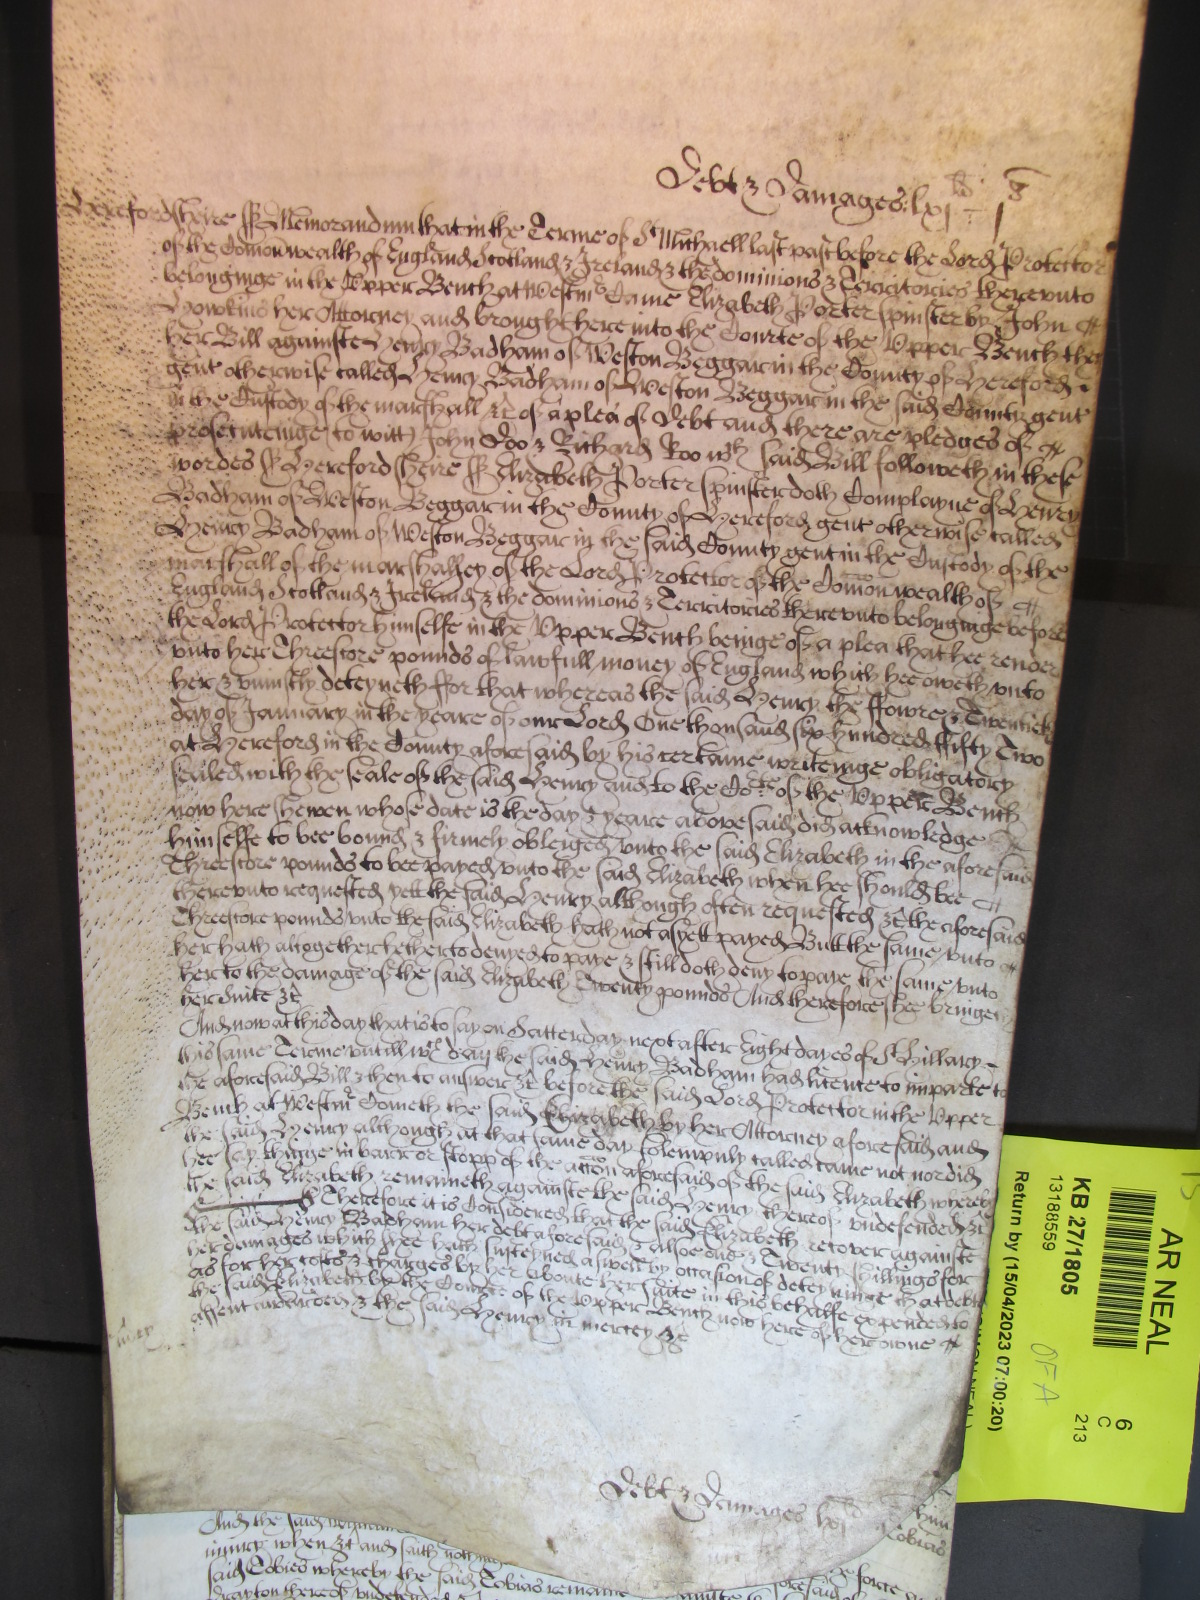 Debt & Damages lxjli js
Herefordsheire ss Memorandum that in the Terme of St Michaell last past before the Lord Protector
of the Comonwealth of England Scotland & Ireland & the dominions & Territories therevnto
belonginge in the Vpper Bench at Westmr Came Elizabeth Porter spinster by John
Howkins her Attorney and brought here into the Courte of the Vpper Bench then
her Bill againste Henry Badham of Weston Beggar in the County of Hereford
gent otherwise called Henry Badham of Weston Beggar in the said County gent
in the Custody of the marshall &c of a plea of Debt and there are pledges of
prosecuteinge to witt John Doo & Richard Roo wch said Bill followeth in these
wordes ss Hereford sheire ss Elizabeth Porter spinster doth Complayne of Henry
Badham of Weston Beggar in the County of Hereford gent otherwise called
Henry Badham of Weston Beggar in the said County gent in the Custody of the
marshall of the marshalsey of the Lord Protector of the Comonwealth of
England Scotland & Ireland & the dominions & Territories therevnto belonginge before
the Lord Protector himselfe in the Vpper Bench beinge of a plea that hee render
vnto her Threescore pounds of lawfull money of England which hee oweth vnto
her & vniustly deteyneth ffor that whereas the said Henry the ffowre & Twentieth
day of January in the yeare of our Lord One thousand six hundred ffifty Two
at Hereford in the County aforesaid by his certaine writeinge obligatory
sealed with the seale of the said Henry and to the Corte of the Vpper Bench
now here shewen whose date is the day & yeare abovesaid did acknowledge
himselfe to bee bound & firmely obleiged vnto the said Elizabeth in the aforesaid
Threescore pounds to bee payed vnto the said Elizabeth when hee should bee
therevnto requested yett the said Henry although often requested &c the aforesaid
Threescore pounds vnto the said Elizabeth hath not as yett payed Butt the same vnto
her hath altogether hetherto denyed to paye & still doth deny to paye the same vnto
her to the damage of the said Elizabeth Twenty pounds And therefore shee bringeth
her suite &c
And now at this day that is to say on Satterday next after Eight dayes of St Hillary
this same Terme vntill wch day the said Henry Badham had licence to imparle to
the aforesaid Bill & then to answer &c before the said Lord Protector in the Vpper
Bench at Westmr Cometh the said Elizabeth by her Attorney aforesaid and
the said Henry although at that same day solempnly called came not nor did
hee say thinge in barr or stopp of the accon aforesaid of the said Elizabeth whereby
the said Elizabeth remaineth againste the said Henry thereof vndefended &c
Therefore it is Considered that the said Elizabeth recover againste
the said Henry Badham her debt aforesaid & allsoe one & Twenty shillings for
her damages which shee hath susteyned aswell by occasion of deteyninge that debt
as for her costs & charges by her aboute her suite in this behalfe expended to
the said Elizabeth by the Courte of the Vpper Bench now here of her owne
assent awarded & the said Henry in mercy &c
mercy
Debt & Damages
And the said
in mercy when &c and saith nothinge
said Tobies whereby the said Tobias remaine
thereby vndefended
Tobias
AR NEAL
6
C
213
KB 27/1805
13188559
Return by (15/04/2023 07:00:20)
OFA